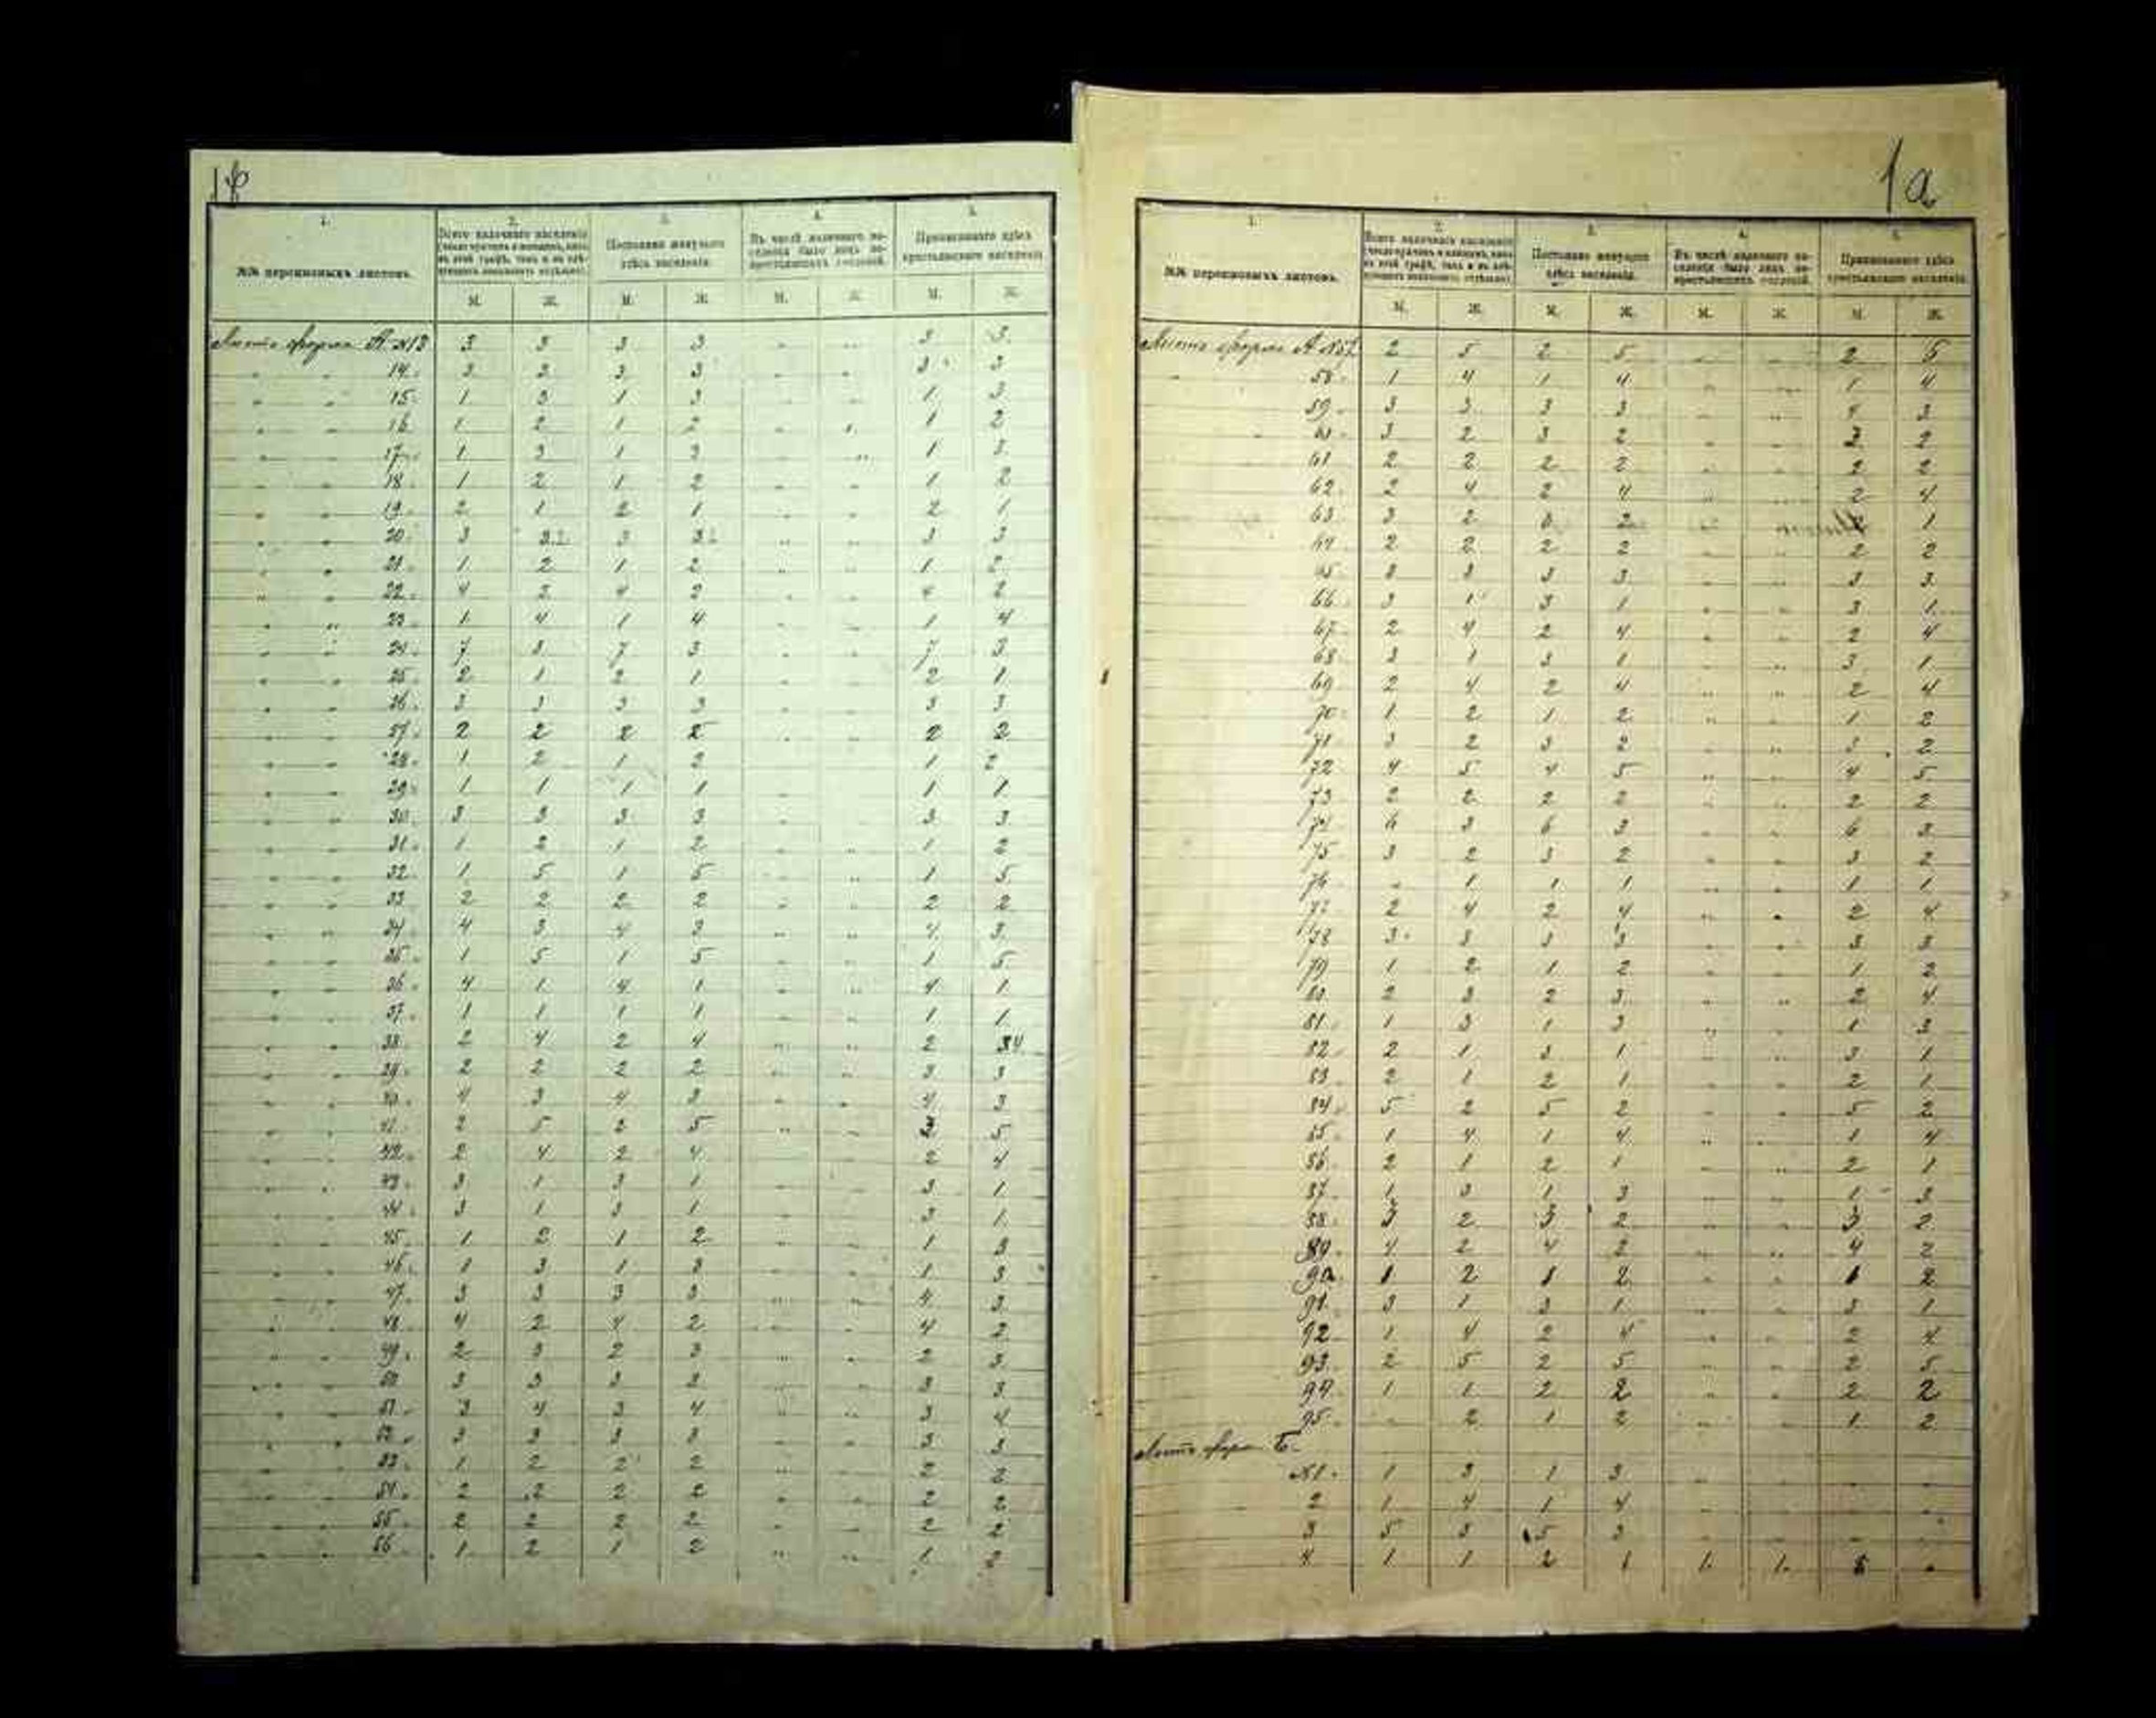 1а
1. 2. 3. 4. 5.
№№ переписныхъ листовъ. Всего наличнаго населенія Постоянно живущаго здѣсь населенія. Въ числѣ наличнаго населенія было лицъ некрестьянскихъ сословій. Приписаннаго здѣсь крестьянскаго населенія
М. Ж. М. Ж. М. Ж. М. Ж.
14 3 3 3 3 3
15 1 3 1 3 1 3
16 1 2 1 2 1 2
17 1 3 1 3 1 3
18 1 2 1 2 1 2
19 2 1 2 1 2 1
21 1 2 1 2 1 2
22 4 2 4 2 4 2
23 1 4 1 4 1 4
24 7 3 7 3 7 3
25 2 1 2 1 2 1
26 3 3 3 3 3 3
2 2 2 2 2 2
28 1 2 1 2 1 2
29 1 1 1 1 1 1
30 3 3 3 3 3 3
31 1 2 1 2 1 2
32 1 5 1 5 1 5
33 2 2 2 2 2 2
34 4 3 4 3 4 3
35 1 5 1 5 1 5
36 4 1 4 1 4 1
37 1 1 1 1 1 1
38 2 4 2 4 2
39 2 2 2 2 3 3
40 4 3 4 3 4 3
41 2 5 2 5 5
42 2 4 2 4 2 4
43 3 1 3 1 3 1
44 3 1 3 1 3 1
45 1 2 1 2 1 3
46 1 3 1 3 1 3
47 3 3 3 3 4 3
48 4 2 4 2 4 2
49 2 3 2 3 2 3
50 3 3 3 3 3 3
51 3 4 3 4 3 4
52 3 3 3 3 3 3
53 1 2 2 2 2 2
54 2 2 2 2 2 2
55 2 2 2 2 2 2
56 1 2 1 2 1 2
1. 2. 3. 4. 5.
№№ переписныхъ листовъ. Всего наличнаго населенія Постоянно живущаго здѣсь населенія. Въ числѣ наличнаго населенія было лицъ некрестьянскихъ сословій. Приписаннаго здѣсь крестьянскаго населенія
М. Ж. М. Ж. М. Ж. М. Ж.
2 5 2 5 2 5
58 1 4 1 4 1 4
59 3 3 3 3 4 3
60 3 2 3 2 3 2
61 2 2 2 2 2 2
62 2 4 2 4 2 4
63 3 2 3 2 1
64 2 2 2 2 2 2
65 3 3 3 3 3 3
66 3 1 3 1 3 1
67 2 4 2 4 2 4
68 3 1 3 1 3 1
69 2 4 2 4 2 4
70 1 2 1 2 1 2
71 3 2 3 2 3 2
72 4 5 4 5 4 5
73 2 2 2 2 2 2
74 6 3 6 3 6 3
75 3 2 3 2 3 2
76 1 1 1 1 1
77 2 4 2 4 2 4
78 3 3 3 3 3 3
79 1 2 1 2 1 2
80 2 3 2 3 2 4
81 1 3 1 3 1 3
82 2 1 3 1 3 1
83 2 1 2 1 2 1
84 5 2 5 2 5 2
85 1 4 1 4 1 4
86 2 1 2 1 2 1
87 1 3 1 3 1 3
88 3 2 3 2 3 2
89 4 2 4 2 4 2
90 1 2 1 2 1 2
91 3 1 3 1 3 1
92 1 4 2 4 2 4
93 2 5 2 5 2 5
94 1 1 2 2 2 2
95 2 1 2 1 2
Б.
№1 1 3 1 3
2 1 4 1 4
3 5 3 5 3
4 1 1 2 1 1 1